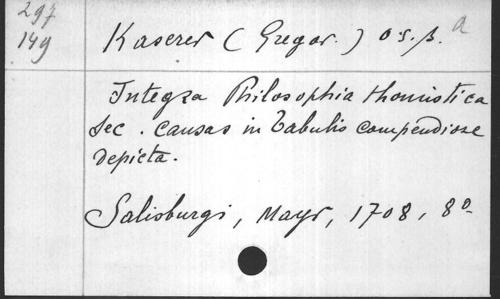 297
149
Kaserer (Gregor.) o s. β. a
Integra Philosophia thomistica
sec. causas in Tabulis compendiose
depicta.
Salisburgi, Mayr, 1708, 8º